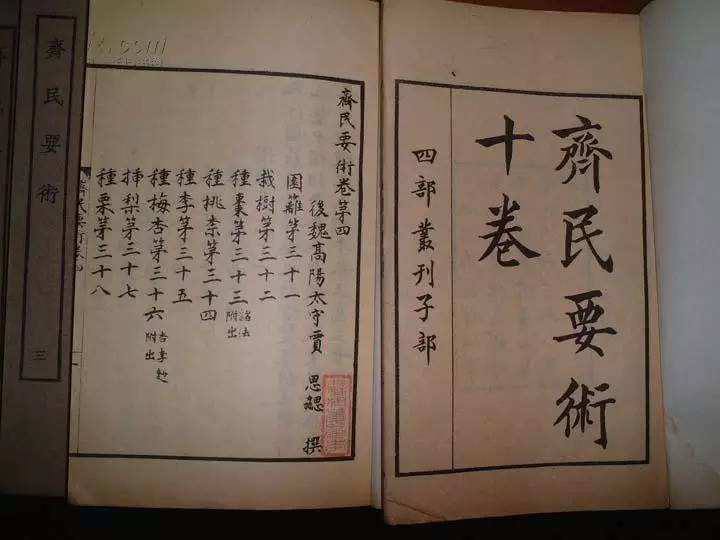 齊民要術
十卷
四部叢刊子部
齊民要術卷第四
後魏高陽太守賈 思勰 撰
園籬第三十一
栽樹第三十二
種棗第三十三 諸法附出
種桃柰第三十四
種李第三十五
種梅杏第三十六 杏李䴬附出
插梨第三十七
種栗第三十八
齊民要術卷四
齊民要術
三